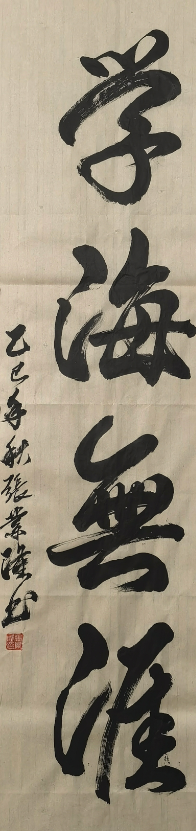 学海無涯
乙巳年秋張業隆书